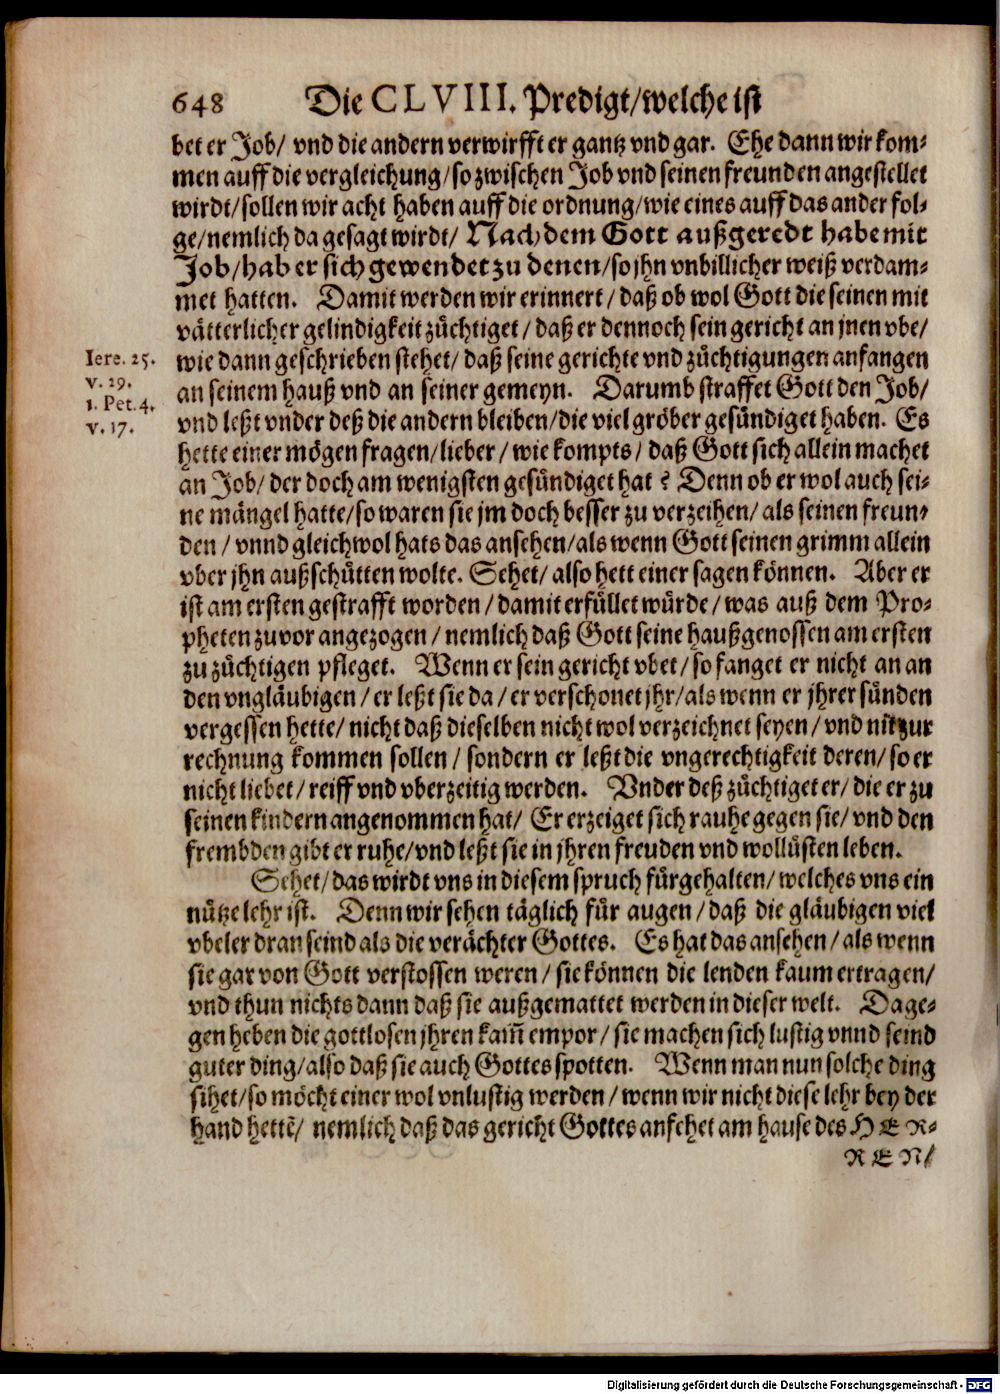 648 Die CLVIII. Predigt/welche ist
bet er Job/ vnd die andern verwirfft er gantz vnd gar. Ehe dann wir kom-
men auff die vergleichung/so zwischen Job vnd seinen freunden angestellet
wirdt/sollen wir acht haben auff die ordnung/wie eines auff das ander fol-
ge/nemlich da gesagt wirdt/ Nach dem Gott außgeredt habe mit
Job/hab er sich gewendet zu denen/so jhn vnbillicher weiß verdam-
met hatten. Damit werden wir erinnert/daß ob wol Gott die seinen mit
vätterlicher gelindigkeit züchtiget/daß er dennoch sein gericht an jnen vbe/
Iere. 25. wie dann geschrieben stehet/daß seine gerichte vnd züchtigungen anfangen
v. 29. an seinem hauß vnd an seiner gemeyn. Darumb straffet Gott den Job/
1. Pet. 4. vnd leßt vnder deß die andern bleiben/die viel gröber gesündiget haben. Es
v. 17. hette einer mögen fragen/lieber/wie kompts/daß Gott sich allein machet
an Job/der doch am wenigsten gesündiget hat? Denn ob er wol auch sei-
ne mängel hatte/so waren sie jm doch besser zu verzeihen/als seinen freun-
den/vnnd gleichwol hats das ansehen/als wenn Gott seinen grimm allein
vber jhn außschütten wolte. Sehet/also hett einer sagen können. Aber er
ist am ersten gestrafft worden/damit erfüllet würde/was auß dem Pro-
pheten zuvor angezogen/nemlich daß Gott seine haußgenossen am ersten
zu züchtigen pfleget. Wenn er sein gericht vbet/so fanget er nicht an an
den vngläubigen/er leßt sie da/er verschonet jhr/als wenn er jhrer sünden
vergessen hette/nicht daß dieselben nicht wol verzeichnet seyen/vnd nit zur
rechnung kommen sollen/sondern er leßt die vngerechtigkeit deren/so er
nicht liebet/reiff vnd vberzeitig werden. Vnder deß züchtiget er/die er zu
seinen kindern angenommen hat/ Er erzeiget sich rauhe gegen sie/vnd den
frembden gibt er ruhe/vnd leßt sie in jhren freuden vnd wollüsten leben.
Sehet/das wirdt vns in diesem spruch fürgehalten/welches vns ein
nütze lehr ist. Denn wir sehen täglich für augen/daß die gläubigen viel
vbeler dran seind als die verächter Gottes. Es hat das ansehen/als wenn
sie gar von Gott verstossen weren/sie können die lenden kaum ertragen/
vnd thun nichts dann daß sie außgemattet werden in dieser welt. Dage-
gen heben die gottlosen jhren kam̃ empor/sie machen sich lustig vnnd seind
guter ding/also daß sie auch Gottes spotten. Wenn man nun solche ding
sihet/so möcht einer wol vnlustig werden/wenn wir nicht diese lehr bey der
hand hettẽ/ nemlich daß das gericht Gottes anfehet am hause des HER-
REN/
Digitalisierung gefördert durch die Deutsche Forschungsgemeinschaft - DFG